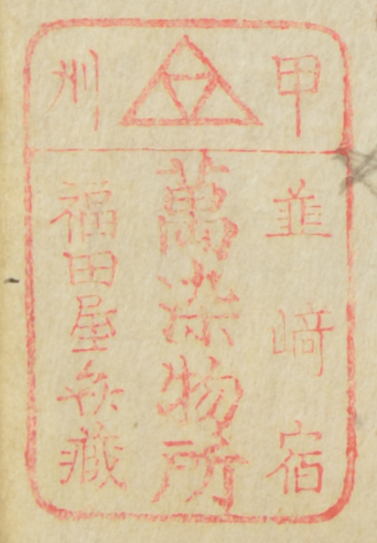 甲州
韮﨑宿
萬染物所
福田屋藏